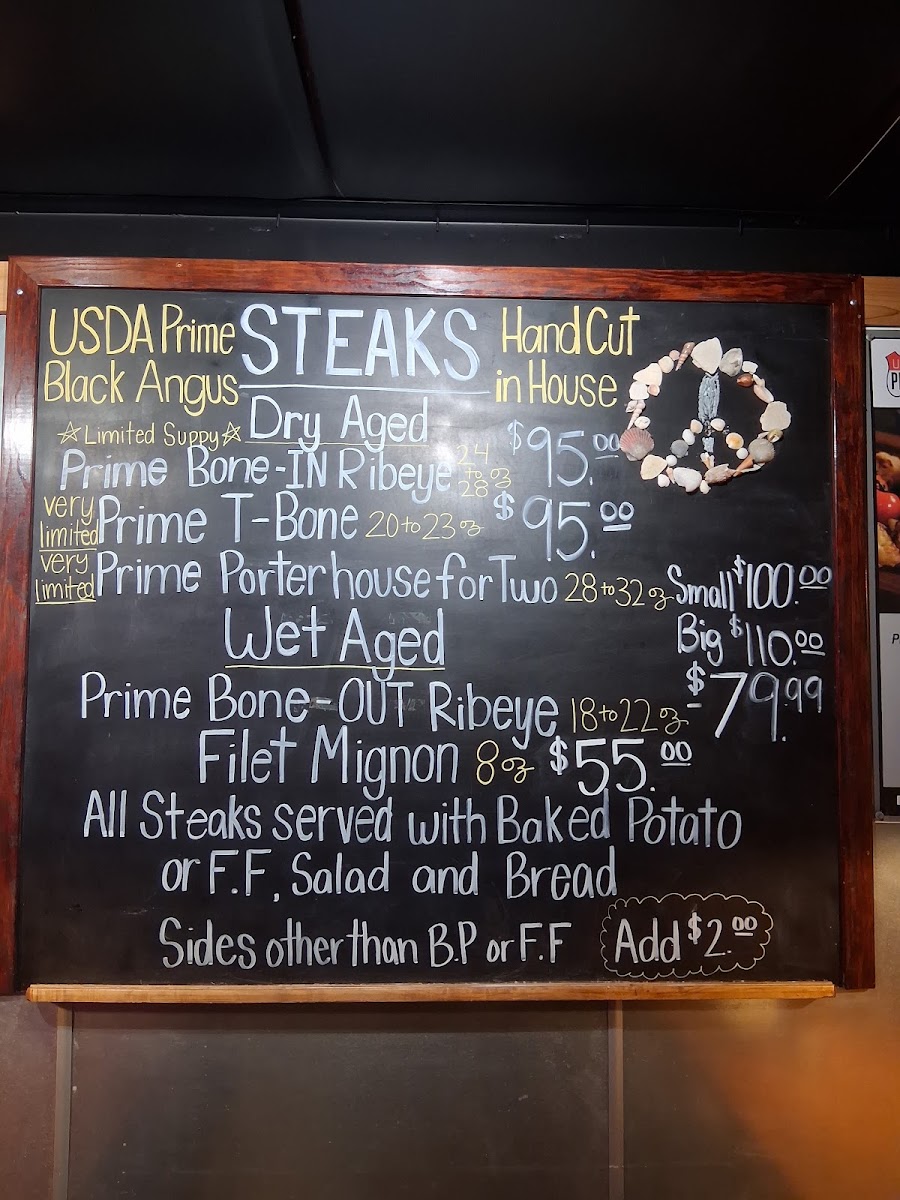 USDA Prime STEAKS Hand Cut
Black Angus in House
☆Limited Suppy☆ Dry Aged
Prime Bone-IN Ribeye 24 to 28 oz $95.00
very limited Prime T-Bone 20 to 23 oz $95.00
very limited Prime Porterhouse for Two 28 to 32 oz Small $100.00
Wet Aged Big $110.00
Prime Bone-OUT Ribeye 18 to 22 oz - $79.99
Filet Mignon 8 oz $55.00
All Steaks served with Baked Potato
or F.F, Salad and Bread
Sides other than B.P or F.F Add $2.00